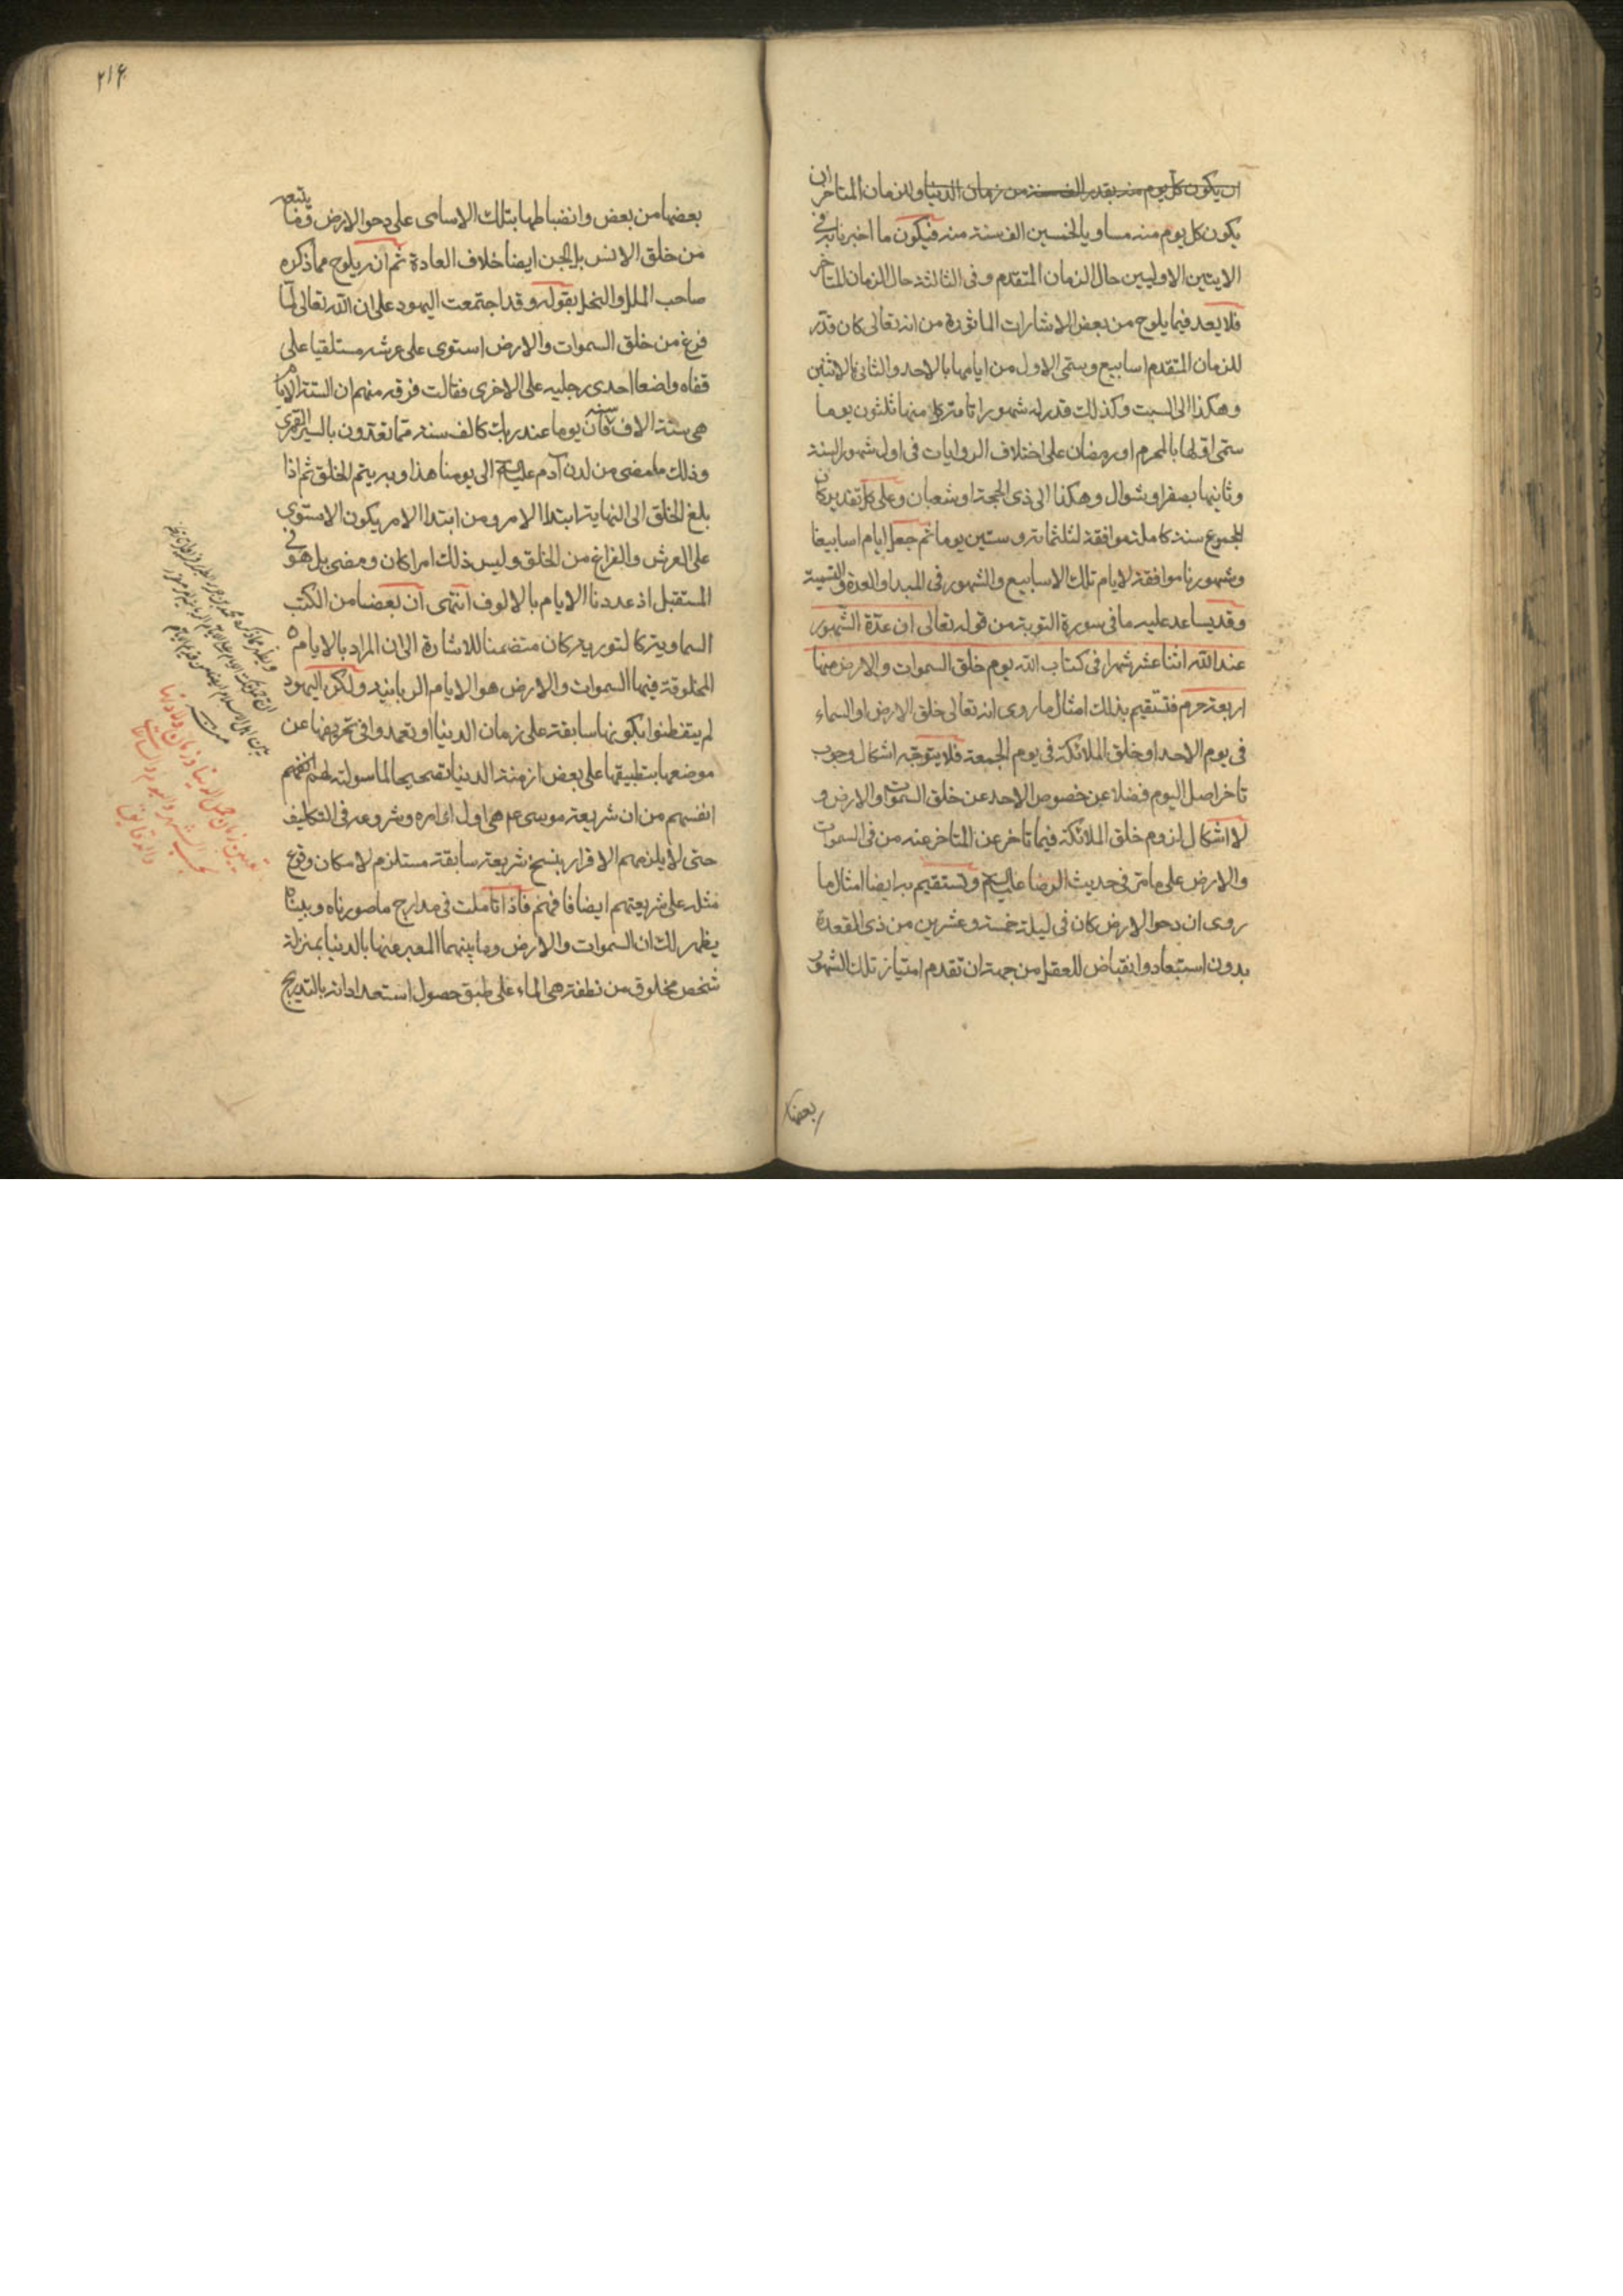 ان يكون كل يوم منه بقدر الف سنة من زمان الدنيا وللزمان المتاخر ان
يكون كل يوم منه مساويا لخمسين الف سنة منه فيكون ما اخبرنا به في
الايتين الاوليين حال الزمان المتقدم وفى الثالثة حال الزمان المتاخر
فلا يعد فيما يلوح من بعض الاشارات الماثورة من انه تعالى كان قدّر
للزمان المتقدم اسابيع وسمّى الاول من ايامها بالاحد والثانى بالاثنين
وهكذا الى السبت وكذلك قدر له شهورا تامة كل منها ثلثون يوما
سمّى اولها بالمحرم او رمضان على اختلاف الروايات فى اول شهور السنة
وثانيها بصفر او شوال وهكذا الى ذى الحجة او شعبان وعلى كل تقدير كان
المجموع سنة كاملة موافقة لثلثمائة وستين يوما ثم جعل ايام اسابيعنا
وشهورنا موافقة لايام تلك الاسابيع والشهور فى المبدا والعدة والتسمية
وقد يساعد عليه ما فى سورة التوبة من قوله تعالى ان عدّة الشهور
عند الله اثنا عشر شهرا فى كتاب الله يوم خلق السموات والارض منها
اربعة حرم فتستقيم بذلك امثال ما روى انه تعالى خلق الارض او السماء
فى يوم الاحد او خلق الملائكة فى يوم الجمعة فلا يتوجّه اشكال وجوب
تاخر اصل اليوم فضلا عن خصوص الاحد عن خلق السموات او الارض و
لا اشكال لزوم خلق الملائكة فيما تاخر عن المتاخر عنه من فى السموات
والارض على ما مرّ فى حديث الرضا عليه السلام وتستقيم به ايضا امثال ما
روى ان دحو الارض كان فى ليلة خمسة وعشرين من ذى القعدة
بدون استبعاد وانقباض للعقل من جهة ان تقدم امتياز تلك الشهور
بعضها
٢١۶
بعضها من بعض وانضباطها بتلك الاسامى على دحو الارض وما يتبعه
من خلق الانس بل الجن ايضا خلاف العادة ثم انه يلوح مما ذكره
صاحب الملل والنحل بقوله وقد اجتمعت اليهود على ان الله تعالى لمّا
فرغ من خلق السموات والارض استوى على عرشه مستلقيا على
قفاه واضعا احدى رجليه على الاخرى فقالت فرقه منهم ان الستة الايام
هى ستة الاف سنة فان يوما عند ربك كالف سنة مما تعدون بالسير القمرى
وذلك ما مضى من لدن آدم عليه السلام الى يومنا هذا وبه يتم الخلق ثم اذا
بلغ الخلق الى النهاية ابتدا الامر ومن ابتدا الامر يكون الاستوى
على العرش والفراغ من الخلق وليس ذلك امرا كان ومضى بل هو فى
المستقبل اذ عددنا الايام بالالوف انتهى ان بعضا من الكتب
السماوية كالتورية كان متضمنا للاشارة الى ان المراد بالايام
المخلوقة فيها السموات والارض هو الايام الربانية ولكن اليهود
لم يتفطنوا بكونها سابقة على زمان الدنيا او تعمدوا فى تحريفها عن
موضعها بتطبيقها على بعض ازمنة الدنيا تصحيحا لما سولته لهم
انفسهم من ان شريعة موسى ع هى اول اوامره وشروعه فى التكليف
حتى لا يلزمهم الاقرار بنسخ شريعة سابقة مستلزم لامكان وقوع
مثله على شريعتهم ايضا فافهم فاذا تاملت فى مدارج ما صورناه وبيناه
يظهر لك ان السموات والارض وما بينهما المعبر عنها بالدنيا بمنزلة
شخص مخلوق من نطفة هى الماء على طبق حصول استعداداته بالتدريج